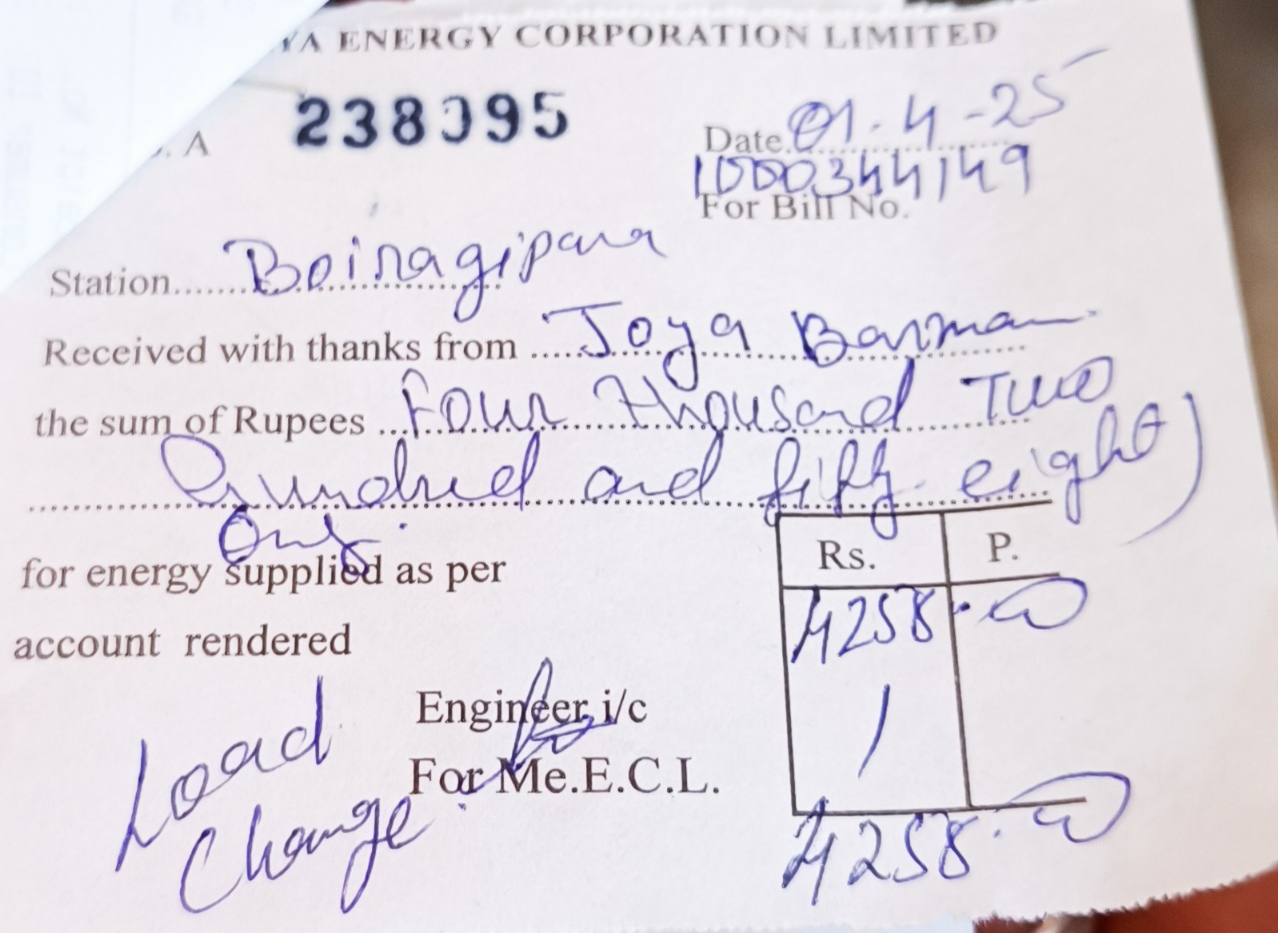 YA ENERGY CORPORATION LIMITED
. A 238395
Date 01-4-25
1000344149
For Bill No.
Station Boiragipara
Received with thanks from Joya Barman
the sum of Rupees Four Thousand Two
Hundred and fifty eight)
Only.
for energy supplied as per
account rendered
Rs. P.
4258.00
Engineer i/c
For Me.E.C.L.
Load
Change
4258.00